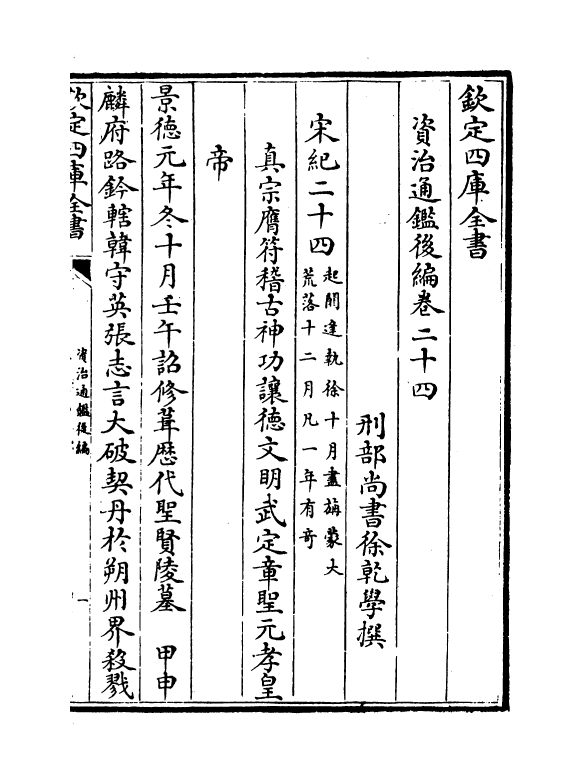 欽定四庫全書
資治通鑑後編卷二十四
刑部尚書徐乾學撰
宋紀二十四起閼逢執徐十月盡旃蒙大
荒落十二月凡一年有奇
真宗膺符稽古神功讓德文明武定章聖元孝皇
帝
景德元年冬十月壬午詔修葺歴代聖賢陵墓　甲申
麟府路鈐轄韓守英張志言大破契丹於朔州界殺戮
欽定四庫全書
資治通鑑後編
一